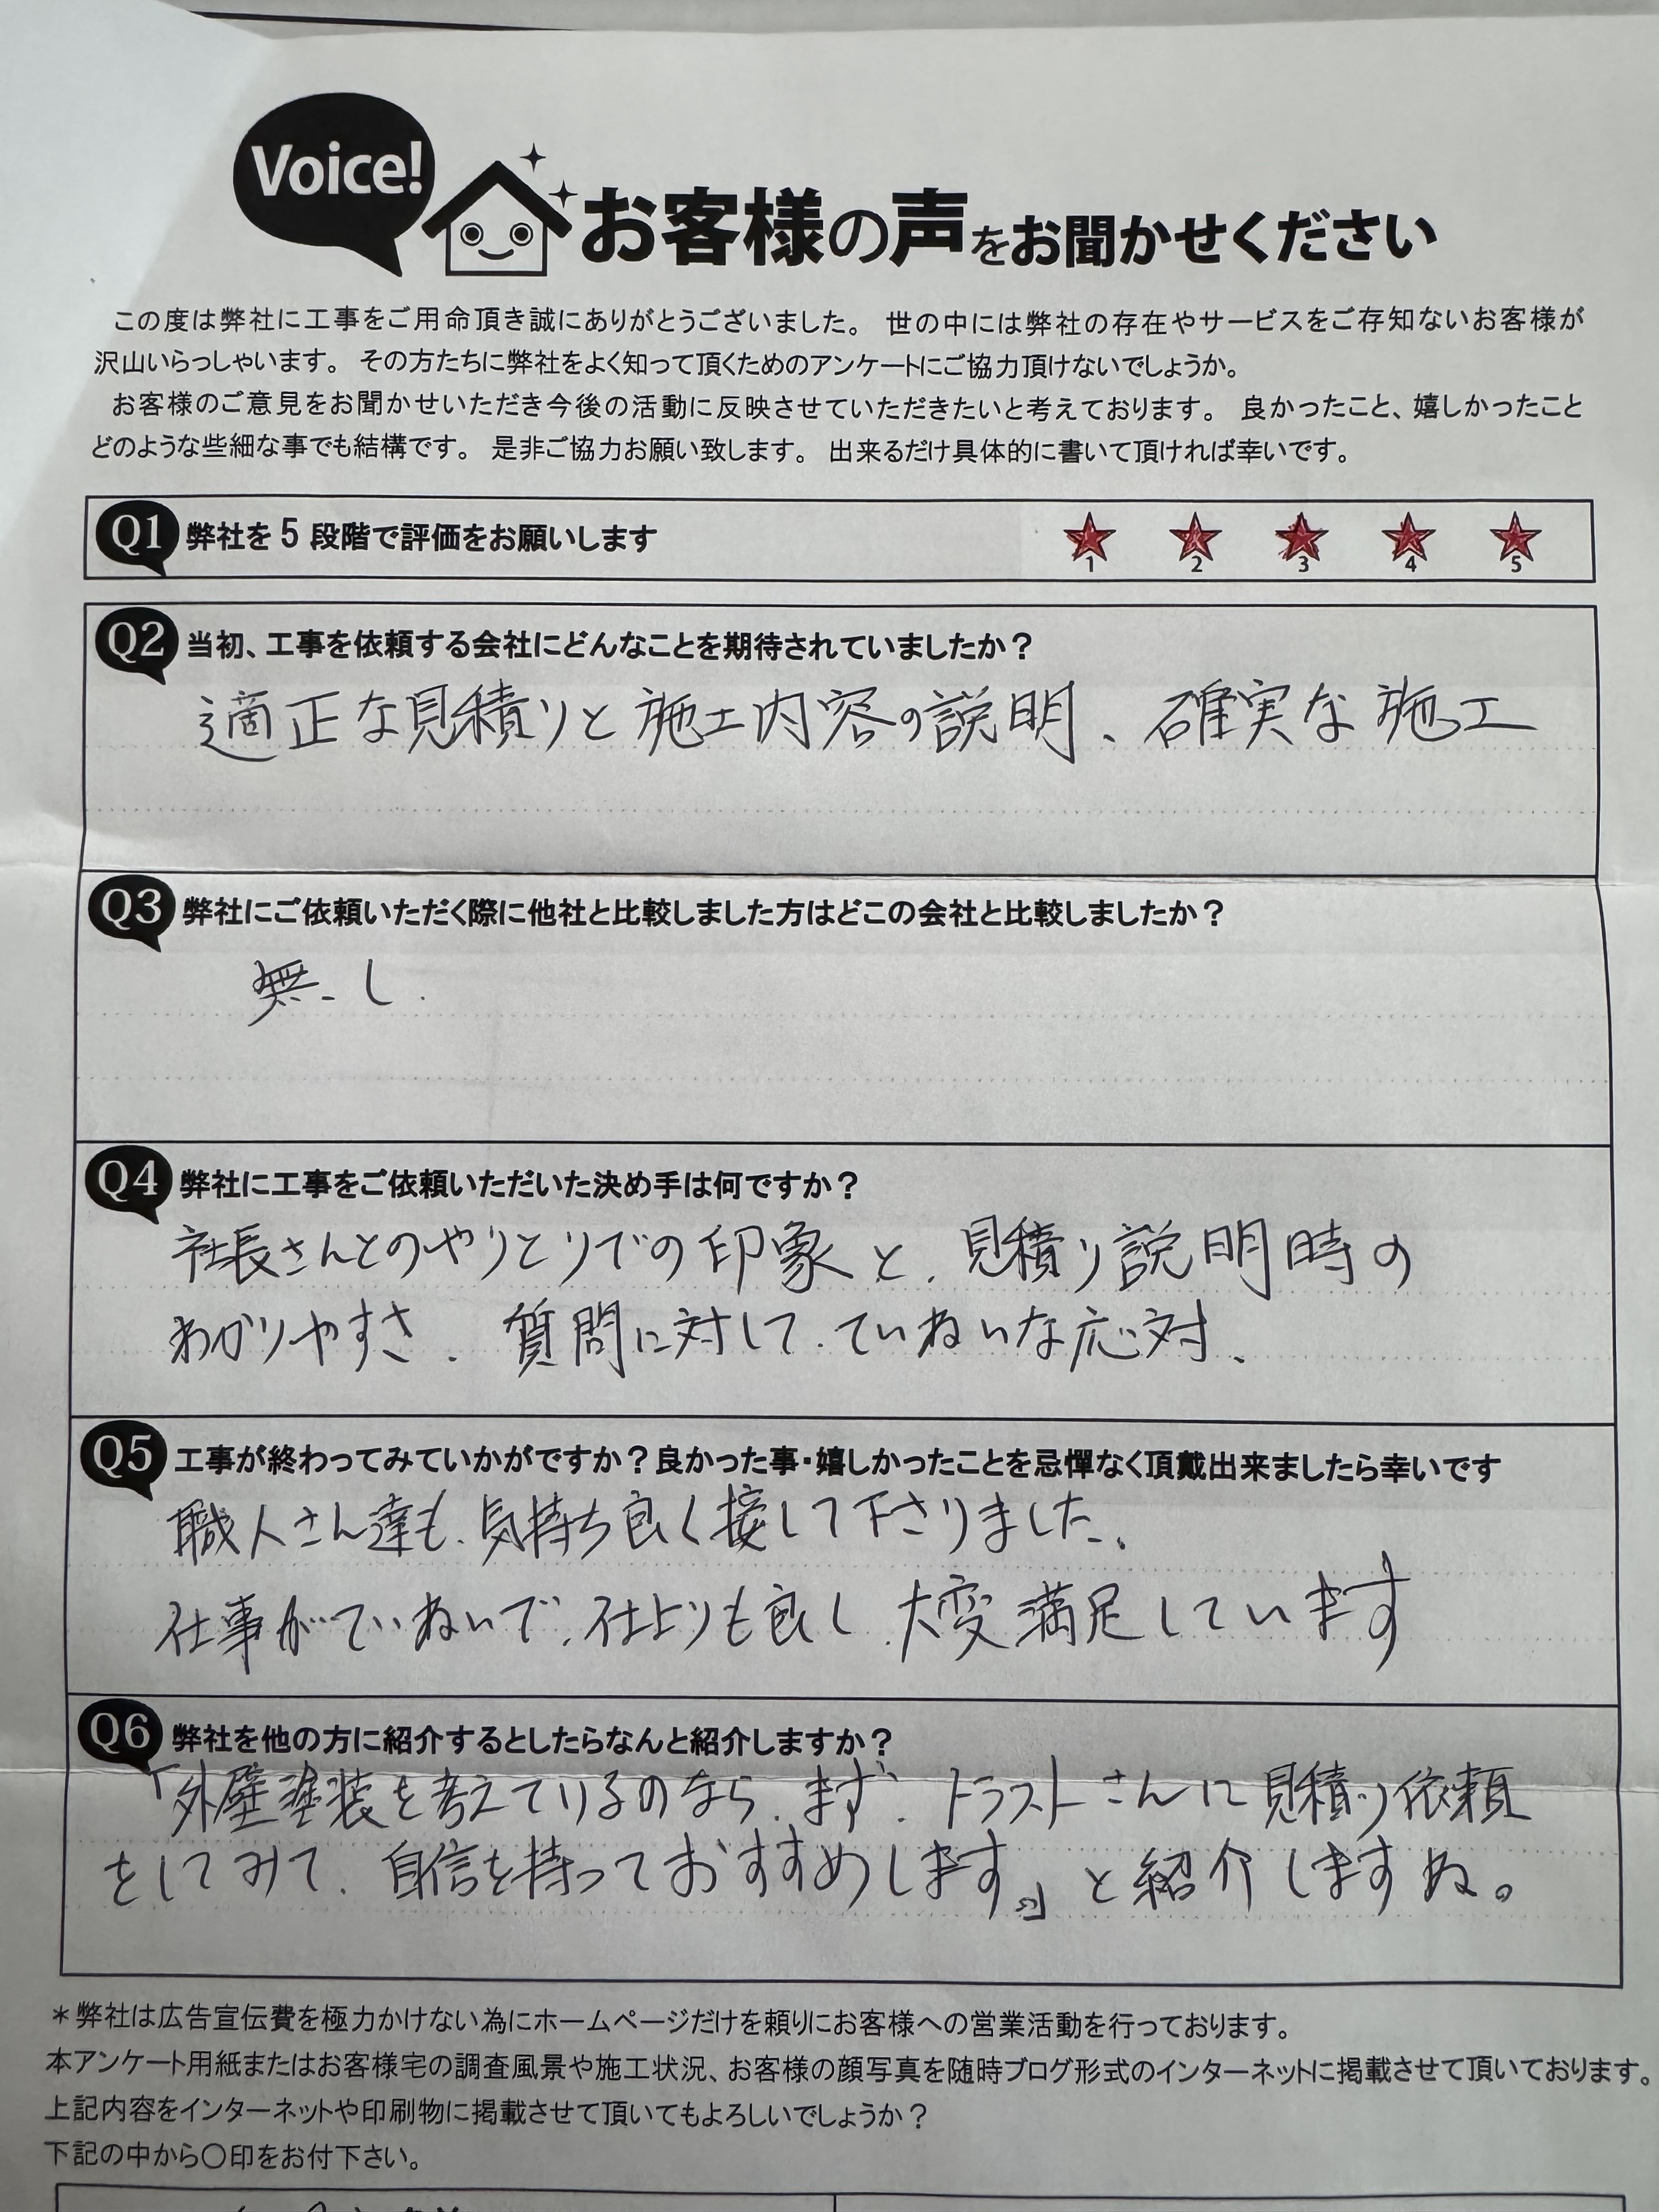 Voice!
お客様の声をお聞かせください
この度は弊社に工事をご用命頂き誠にありがとうございました。 世の中には弊社の存在やサービスをご存知ないお客様が
沢山いらっしゃいます。 その方たちに弊社をよく知って頂くためのアンケートにご協力頂けないでしょうか。
お客様のご意見をお聞かせいただき今後の活動に反映させていただきたいと考えております。 良かったこと、嬉しかったこと
どのような些細な事でも結構です。 是非ご協力お願い致します。 出来るだけ具体的に書いて頂ければ幸いです。
Q1 弊社を5段階で評価をお願いします 1 2 3 4 5
Q2 当初、工事を依頼する会社にどんなことを期待されていましたか？
適正な見積りと施工内容の説明、確実な施工
Q3 弊社にご依頼いただく際に他社と比較しました方はどこの会社と比較しましたか？
無し.
Q4 弊社に工事をご依頼いただいた決め手は何ですか？
社長さんとのやりとりでの印象と、見積り説明時の
わかりやすさ、質問に対して、ていねいな応対、
Q5 工事が終わってみていかがですか？良かった事・嬉しかったことを忌憚なく頂戴出来ましたら幸いです
職人さん達も、気持ち良く接して下さりました、
仕事がていねいで、仕上りも良し、大変満足しています
Q6 弊社を他の方に紹介するとしたらなんと紹介しますか？
「外壁塗装を考えているのなら、まず、トラストさんに見積り依頼
をしてみて、自信を持っておすすめします。」と紹介しますね。
＊弊社は広告宣伝費を極力かけない為にホームページだけを頼りにお客様への営業活動を行っております。
本アンケート用紙またはお客様宅の調査風景や施工状況、お客様の顔写真を随時ブログ形式のインターネットに掲載させて頂いております。
上記内容をインターネットや印刷物に掲載させて頂いてもよろしいでしょうか？
下記の中から〇印をお付下さい。